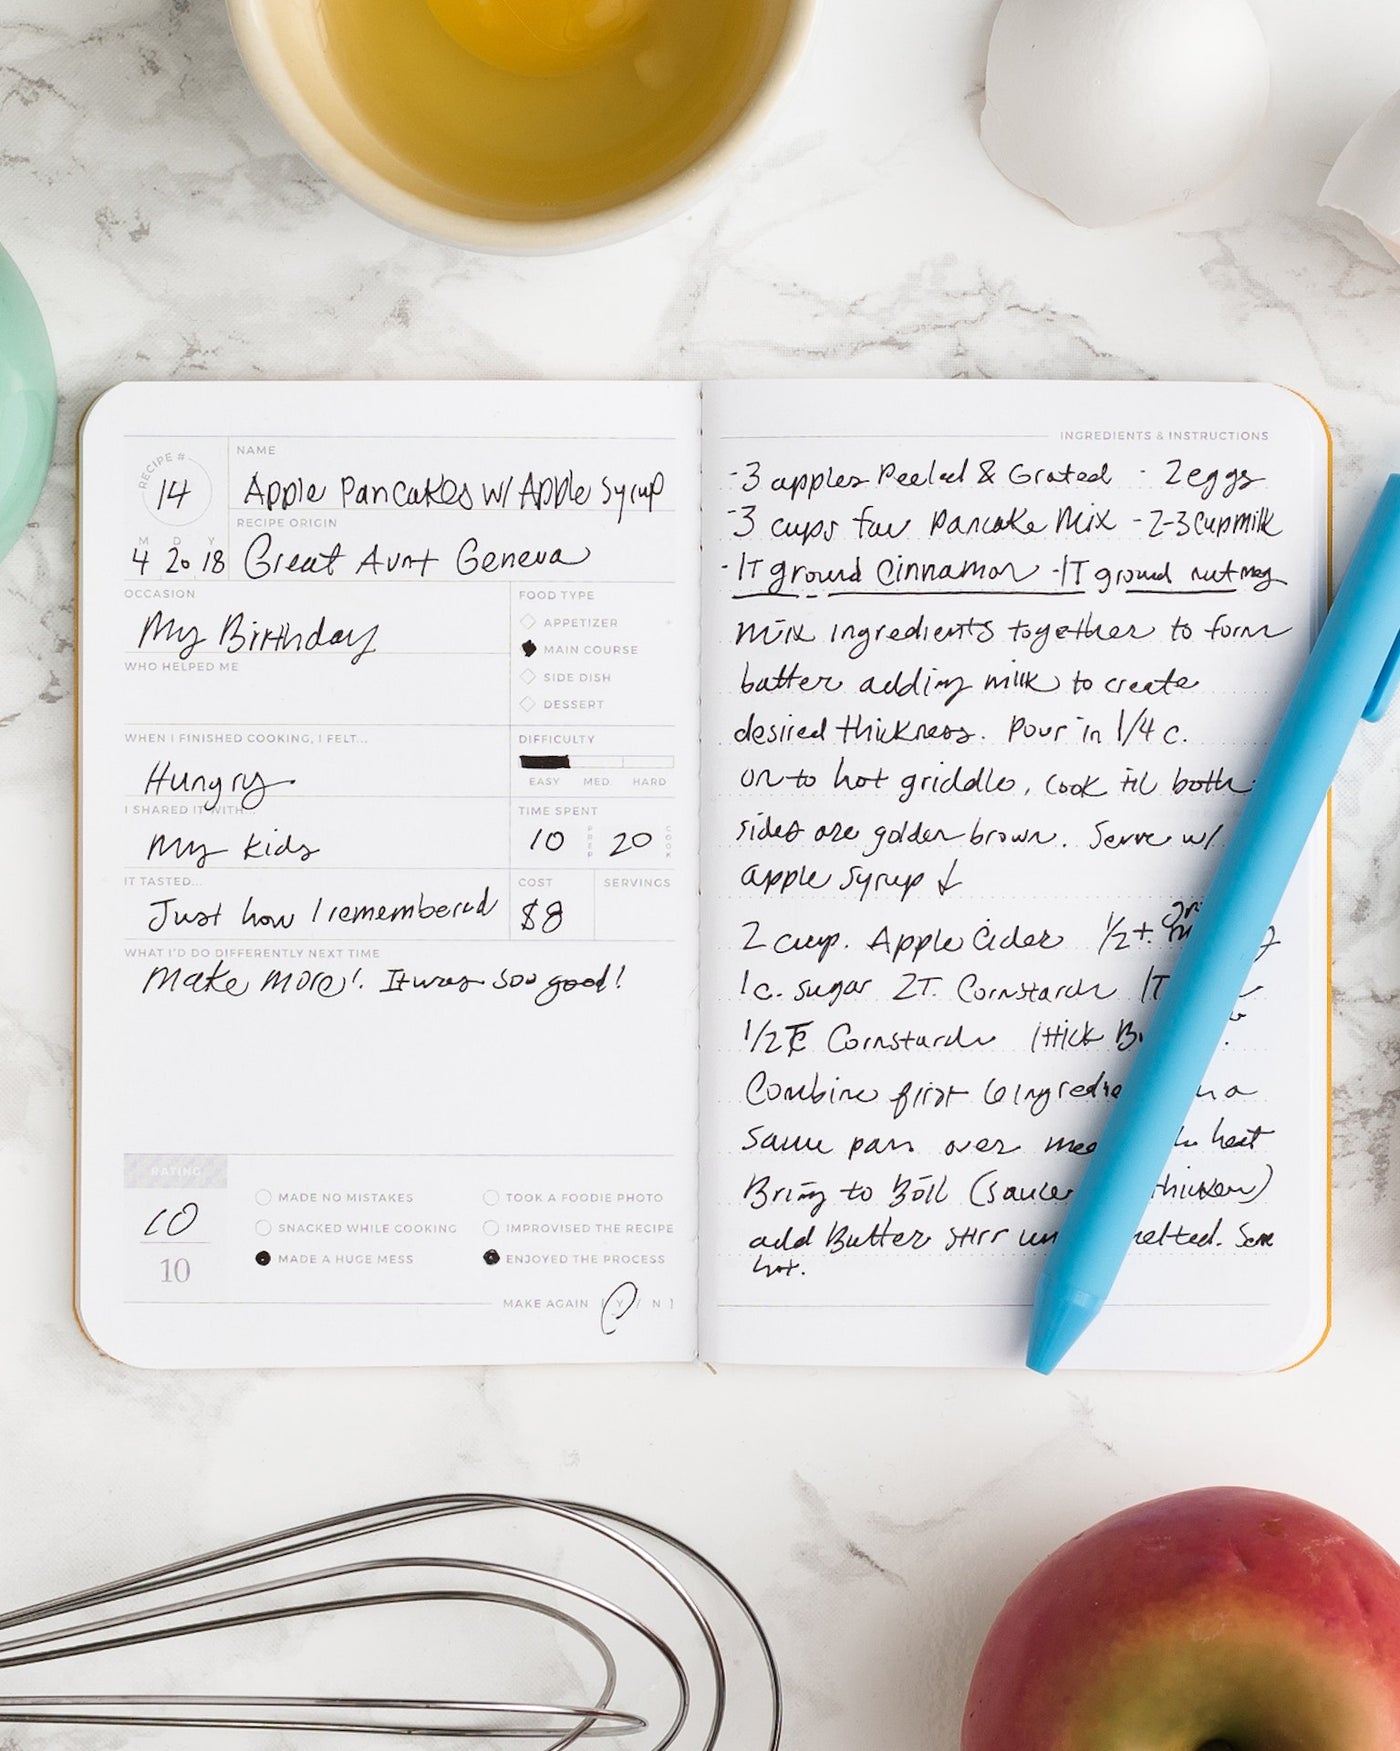 RECIPE #
14
NAME
Apple Pancakes w/ Apple Syrup
RECIPE ORIGIN
M D Y
4 20 18
Great Aunt Geneva
OCCASION
My Birthday
WHO HELPED ME
WHEN I FINISHED COOKING, I FELT...
Hungry
I SHARED IT WITH...
My kids
IT TASTED...
Just how I remembered
FOOD TYPE
APPETIZER
MAIN COURSE
SIDE DISH
DESSERT
DIFFICULTY
EASY MED. HARD
TIME SPENT
10 PREP 20 COOK
COST
$8
SERVINGS
WHAT I'D DO DIFFERENTLY NEXT TIME
Make more! It was soo good!
RATING
10
10
MADE NO MISTAKES
SNACKED WHILE COOKING
MADE A HUGE MESS
TOOK A FOODIE PHOTO
IMPROVISED THE RECIPE
ENJOYED THE PROCESS
MAKE AGAIN [ Y / N ]
INGREDIENTS & INSTRUCTIONS
-3 apples Peeled & Grated - 2 eggs
-3 cups fav Pancake Mix -2-3 cup milk
-1T ground Cinnamon -1T ground nutmeg
Mix ingredients together to form
batter adding milk to create
desired thickness. Pour in 1/4 c.
on to hot griddle, cook til both
sides are golden brown. Serve w/
apple syrup ↓
2 cup. Apple Cider 1/2 t.
1c. sugar 2T. Cornstarch 1T
1/2 Cornstarch 1 stick
Combine first 6 a
Same pan over heat
Bring to Boil (sauce thicken)
add Butter stir melted. Serve
hot.